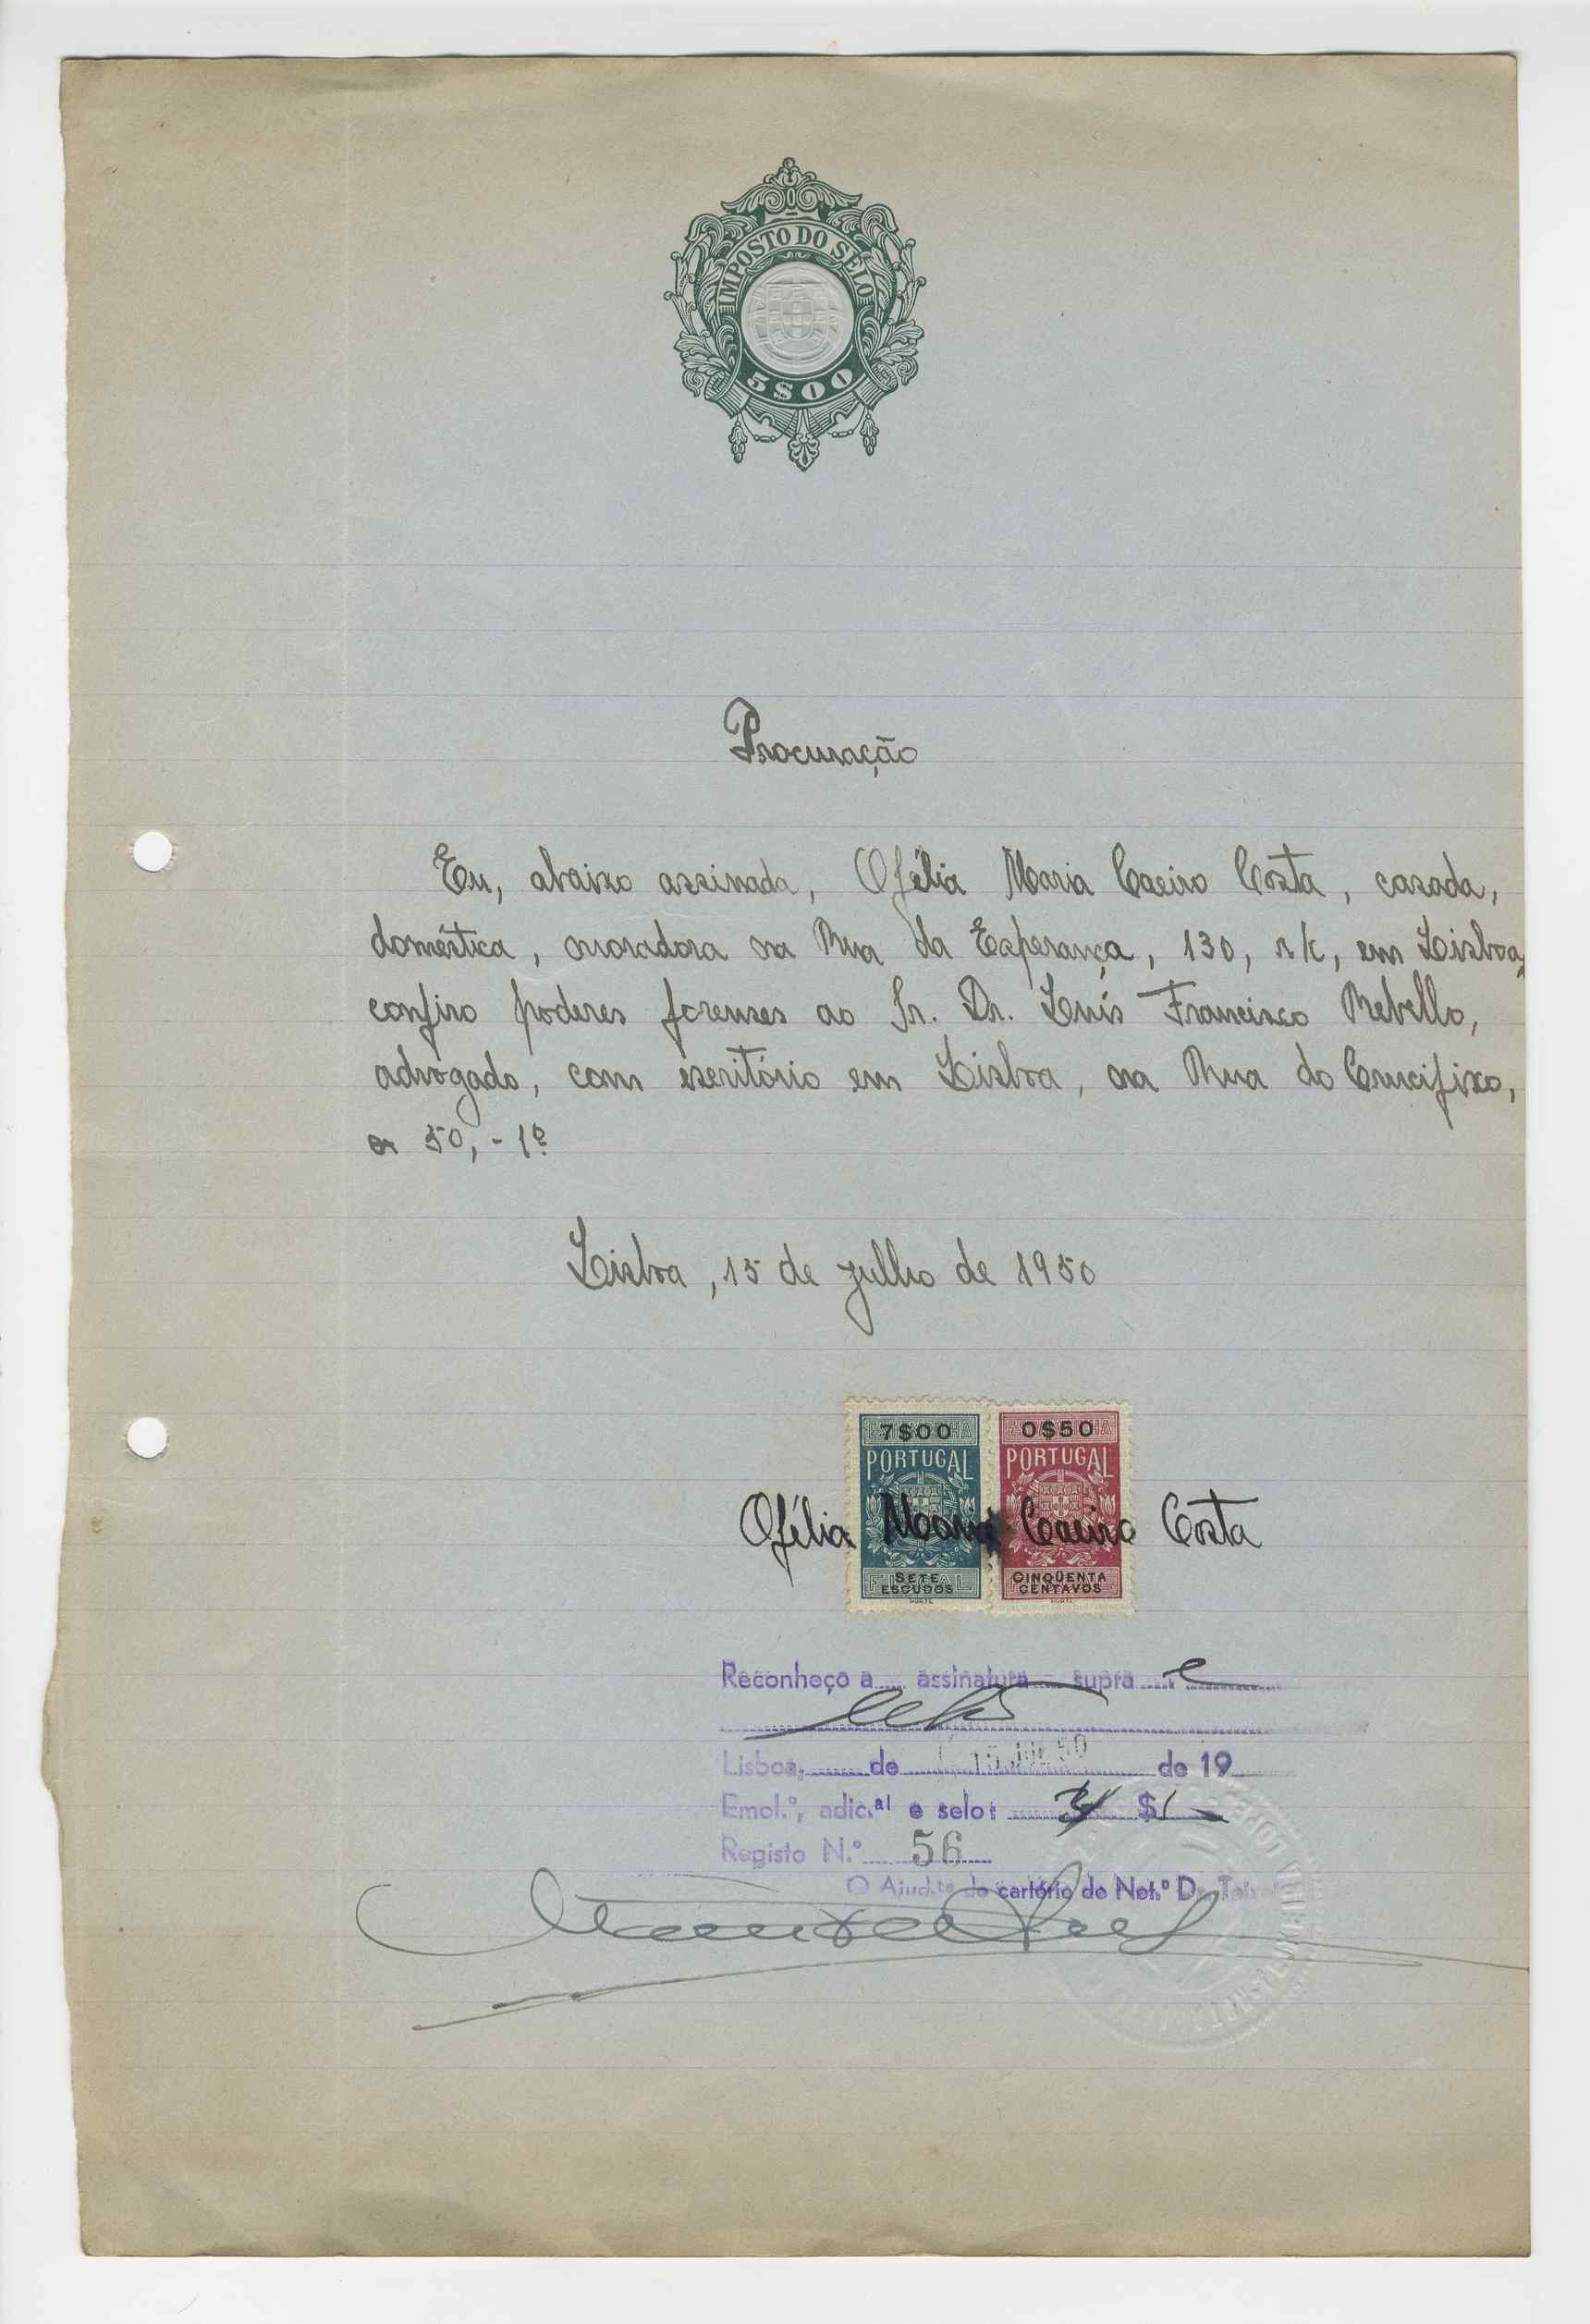 IMPOSTO DO SELO
5$00
Procuração
Eu, abaixo assinada, Ofélia Maria Caeiro Costa, casada,
doméstica, moradora na Rua da Esperança, 130, r/c, em Lisboa,
confiro poderes forenses ao Sr. Dr. Luís Francisco Rebello,
advogado, com escritório em Lisboa, na Rua do Crucifixo,
50, - 1º
Lisboa, 15 de julho de 1950
7$00 0$50
PORTUGAL PORTUGAL
Ofélia Maria Caeiro Costa
SETE CINQÜENTA
ESCUDOS CENTAVOS
Reconheço a assinatura supra e
Lisboa, de 15 JUL 50 de 19
Emol.º, adic.al e selo: $
Registo N.º 56
O Ajud.te do cartório do Not.º Dr.